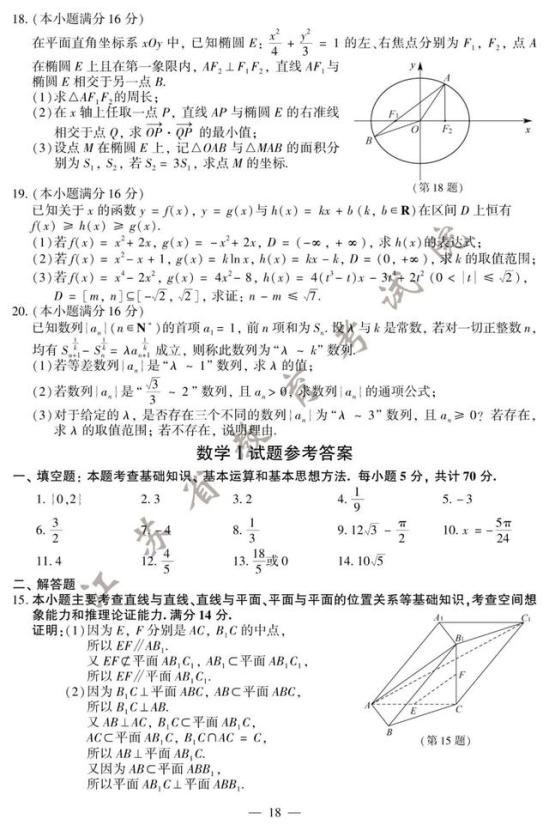 18. (本小题满分 16 分)
在平面直角坐标系 xOy 中, 已知椭圆 E: x²/4 + y²/3 = 1 的左、右焦点分别为 F₁, F₂, 点 A
在椭圆 E 上且在第一象限内, AF₂⊥F₁F₂, 直线 AF₁与
椭圆 E 相交于另一点 B.
(1) 求△AF₁F₂的周长;
(2) 在 x 轴上任取一点 P, 直线 AP 与椭圆 E 的右准线
相交于点 Q, 求 →OP · →QP 的最小值;
(3) 设点 M 在椭圆 E 上, 记△OAB 与△MAB 的面积分
别为 S₁, S₂, 若 S₂ = 3S₁, 求点 M 的坐标.
y
A
F₁
O
F₂
x
B
(第 18 题)
19. (本小题满分 16 分)
已知关于 x 的函数 y = f(x), y = g(x)与 h(x) = kx + b (k, b∈R)在区间 D 上恒有
f(x) ≥ h(x) ≥ g(x).
(1) 若 f(x) = x² + 2x, g(x) = −x² + 2x, D = (−∞, +∞), 求 h(x)的表达式;
(2) 若 f(x) = x² − x + 1, g(x) = k ln x, h(x) = kx − k, D = (0, +∞), 求 k 的取值范围;
(3) 若 f(x) = x⁴ − 2x², g(x) = 4x² − 8, h(x) = 4(t³ − t)x − 3t⁴ + 2t² (0 < |t| ≤ √2),
D = [m, n]⊆[−√2, √2], 求证: n − m ≤ √7.
20. (本小题满分 16 分)
已知数列{aₙ}(n∈N*)的首项 a₁ = 1, 前 n 项和为 Sₙ. 设 λ 与 k 是常数, 若对一切正整数 n,
均有 Sₙ₊₁^(1/k) − Sₙ^(1/k) = λaₙ₊₁^(1/k) 成立, 则称此数列为“λ ~ k”数列.
(1) 若等差数列{aₙ}是“λ ~ 1”数列, 求 λ 的值;
(2) 若数列{aₙ}是“√3/3 ~ 2”数列, 且 aₙ > 0, 求数列{aₙ}的通项公式;
(3) 对于给定的 λ, 是否存在三个不同的数列{aₙ}为“λ ~ 3”数列, 且 aₙ ≥ 0? 若存在,
求 λ 的取值范围; 若不存在, 说明理由.
数学Ⅰ试题参考答案
一、填空题: 本题考查基础知识、基本运算和基本思想方法. 每小题 5 分, 共计 70 分.
1. {0,2} 2. 3 3. 2 4. 1/9 5. −3
6. 3/2 7. −4 8. 1/3 9. 12√3 − π/2 10. x = −5π/24
11. 4 12. 4/5 13. 18/5 或 0 14. 10√5
二、解答题
15. 本小题主要考查直线与直线、直线与平面、平面与平面的位置关系等基础知识, 考查空间想
象能力和推理论证能力. 满分 14 分.
证明: (1) 因为 E, F 分别是 AC, B₁C 的中点,
所以 EF∥AB₁.
又 EF⊄平面 AB₁C₁, AB₁⊂平面 AB₁C₁,
所以 EF∥平面 AB₁C₁.
(2) 因为 B₁C⊥平面 ABC, AB⊂平面 ABC,
所以 B₁C⊥AB.
又 AB⊥AC, B₁C⊂平面 AB₁C,
AC⊂平面 AB₁C, B₁C∩AC = C,
所以 AB⊥平面 AB₁C.
又因为 AB⊂平面 ABB₁,
所以平面 AB₁C⊥平面 ABB₁.
A₁
C₁
B₁
F
A
E
C
B
(第 15 题)
江苏省教育考试院
— 18 —